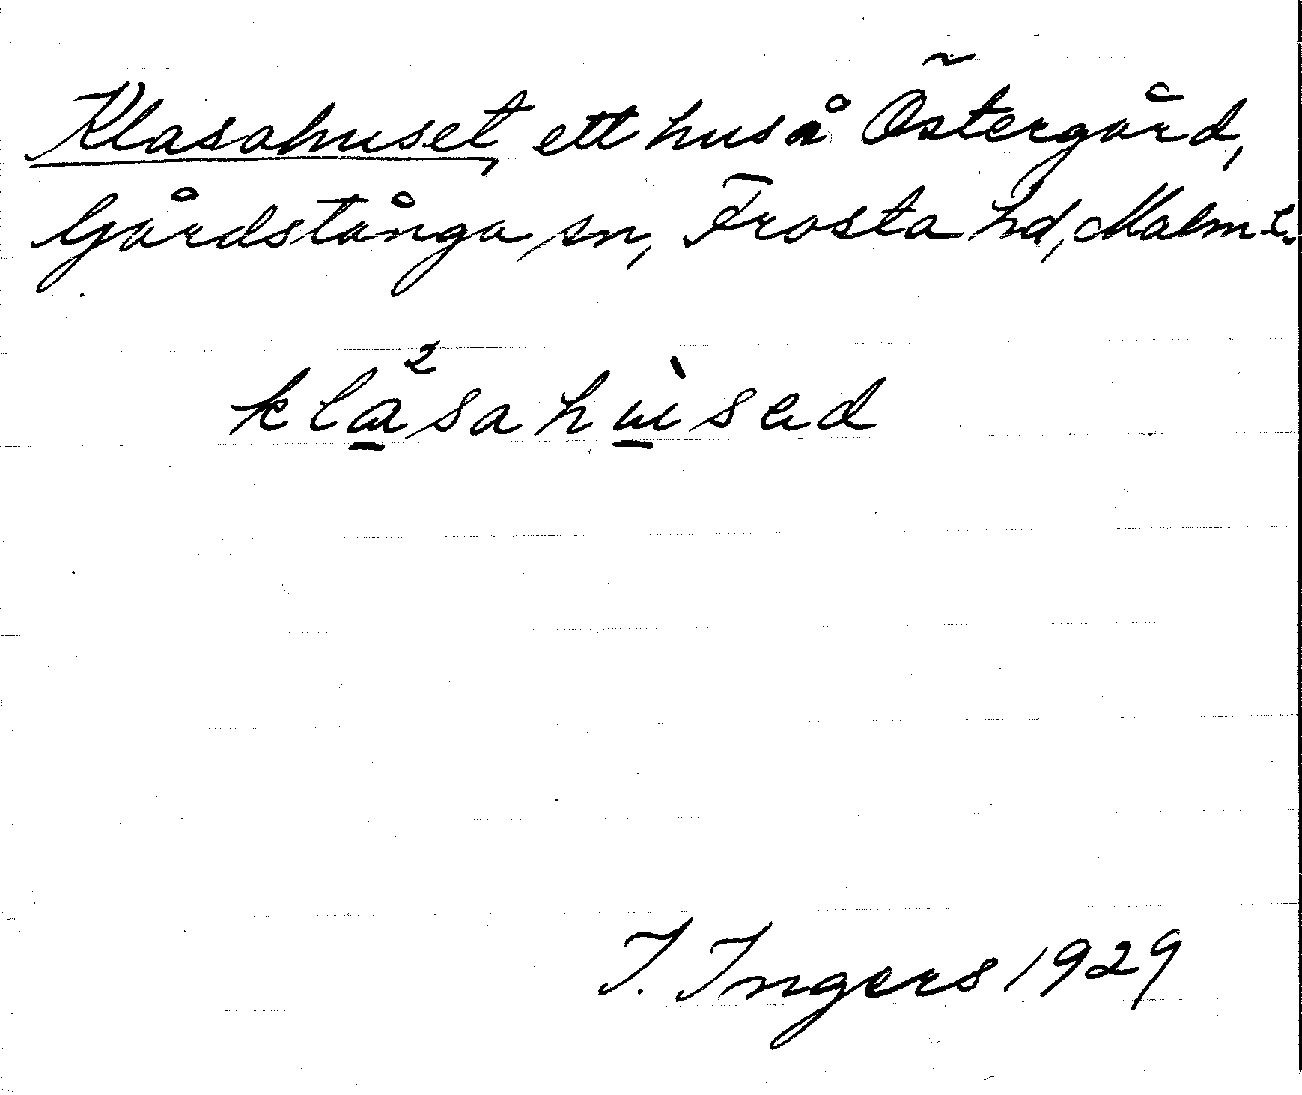 Klasahuset, ett hus å Östergård,
Gårdstånga sn, Frosta hd, Malm. l.
kla²sahùsad
I. Ingers 1929